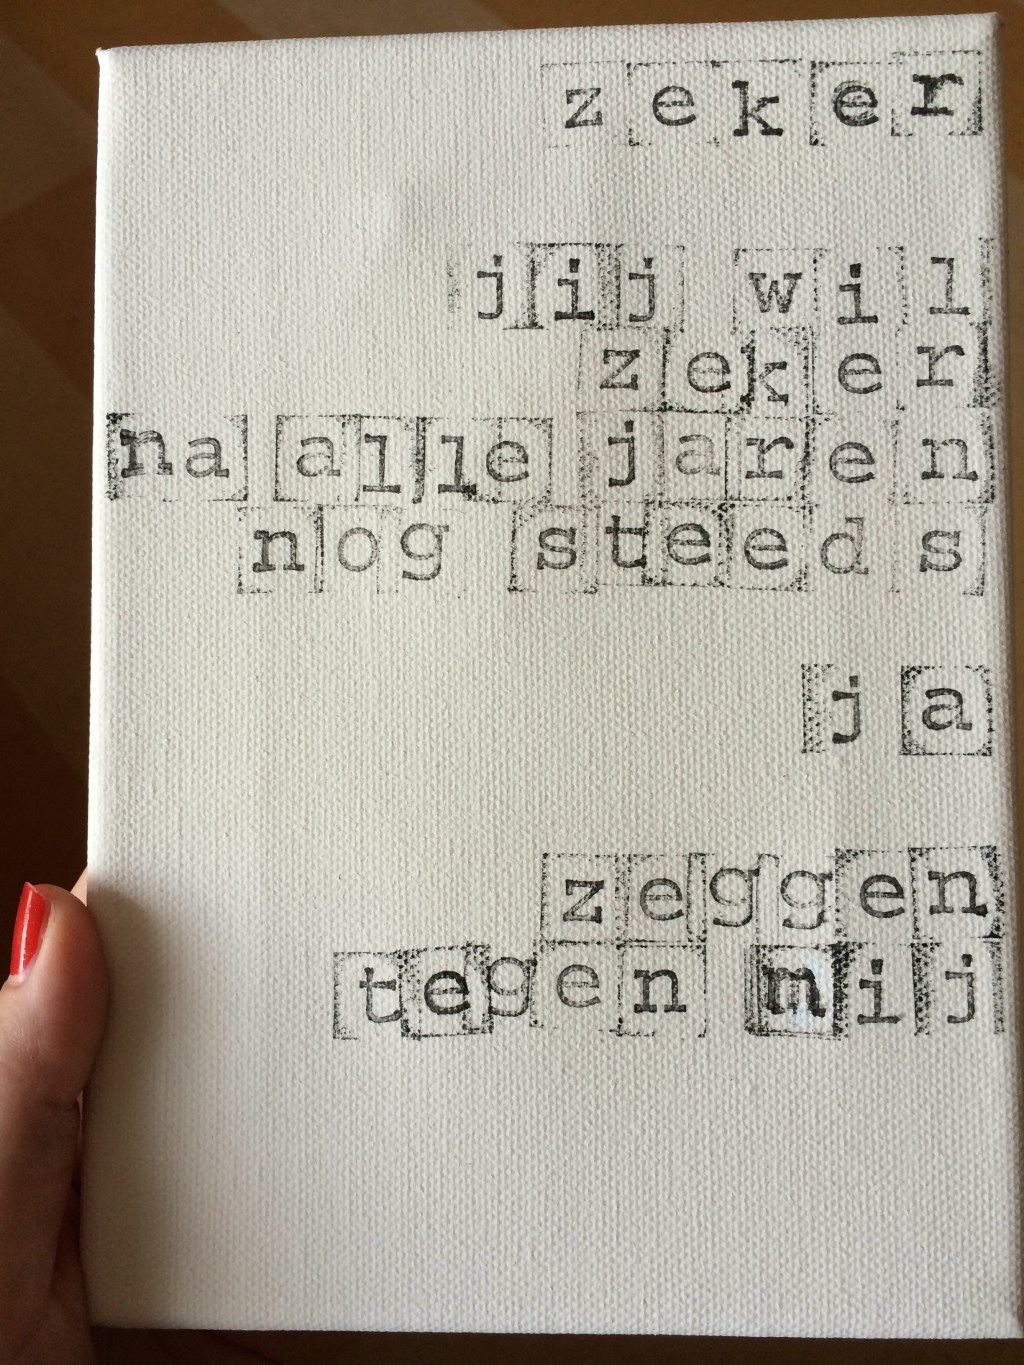 zeker
jij wil
zeker
na alle jaren
nog steeds
ja
zeggen
tegen mij